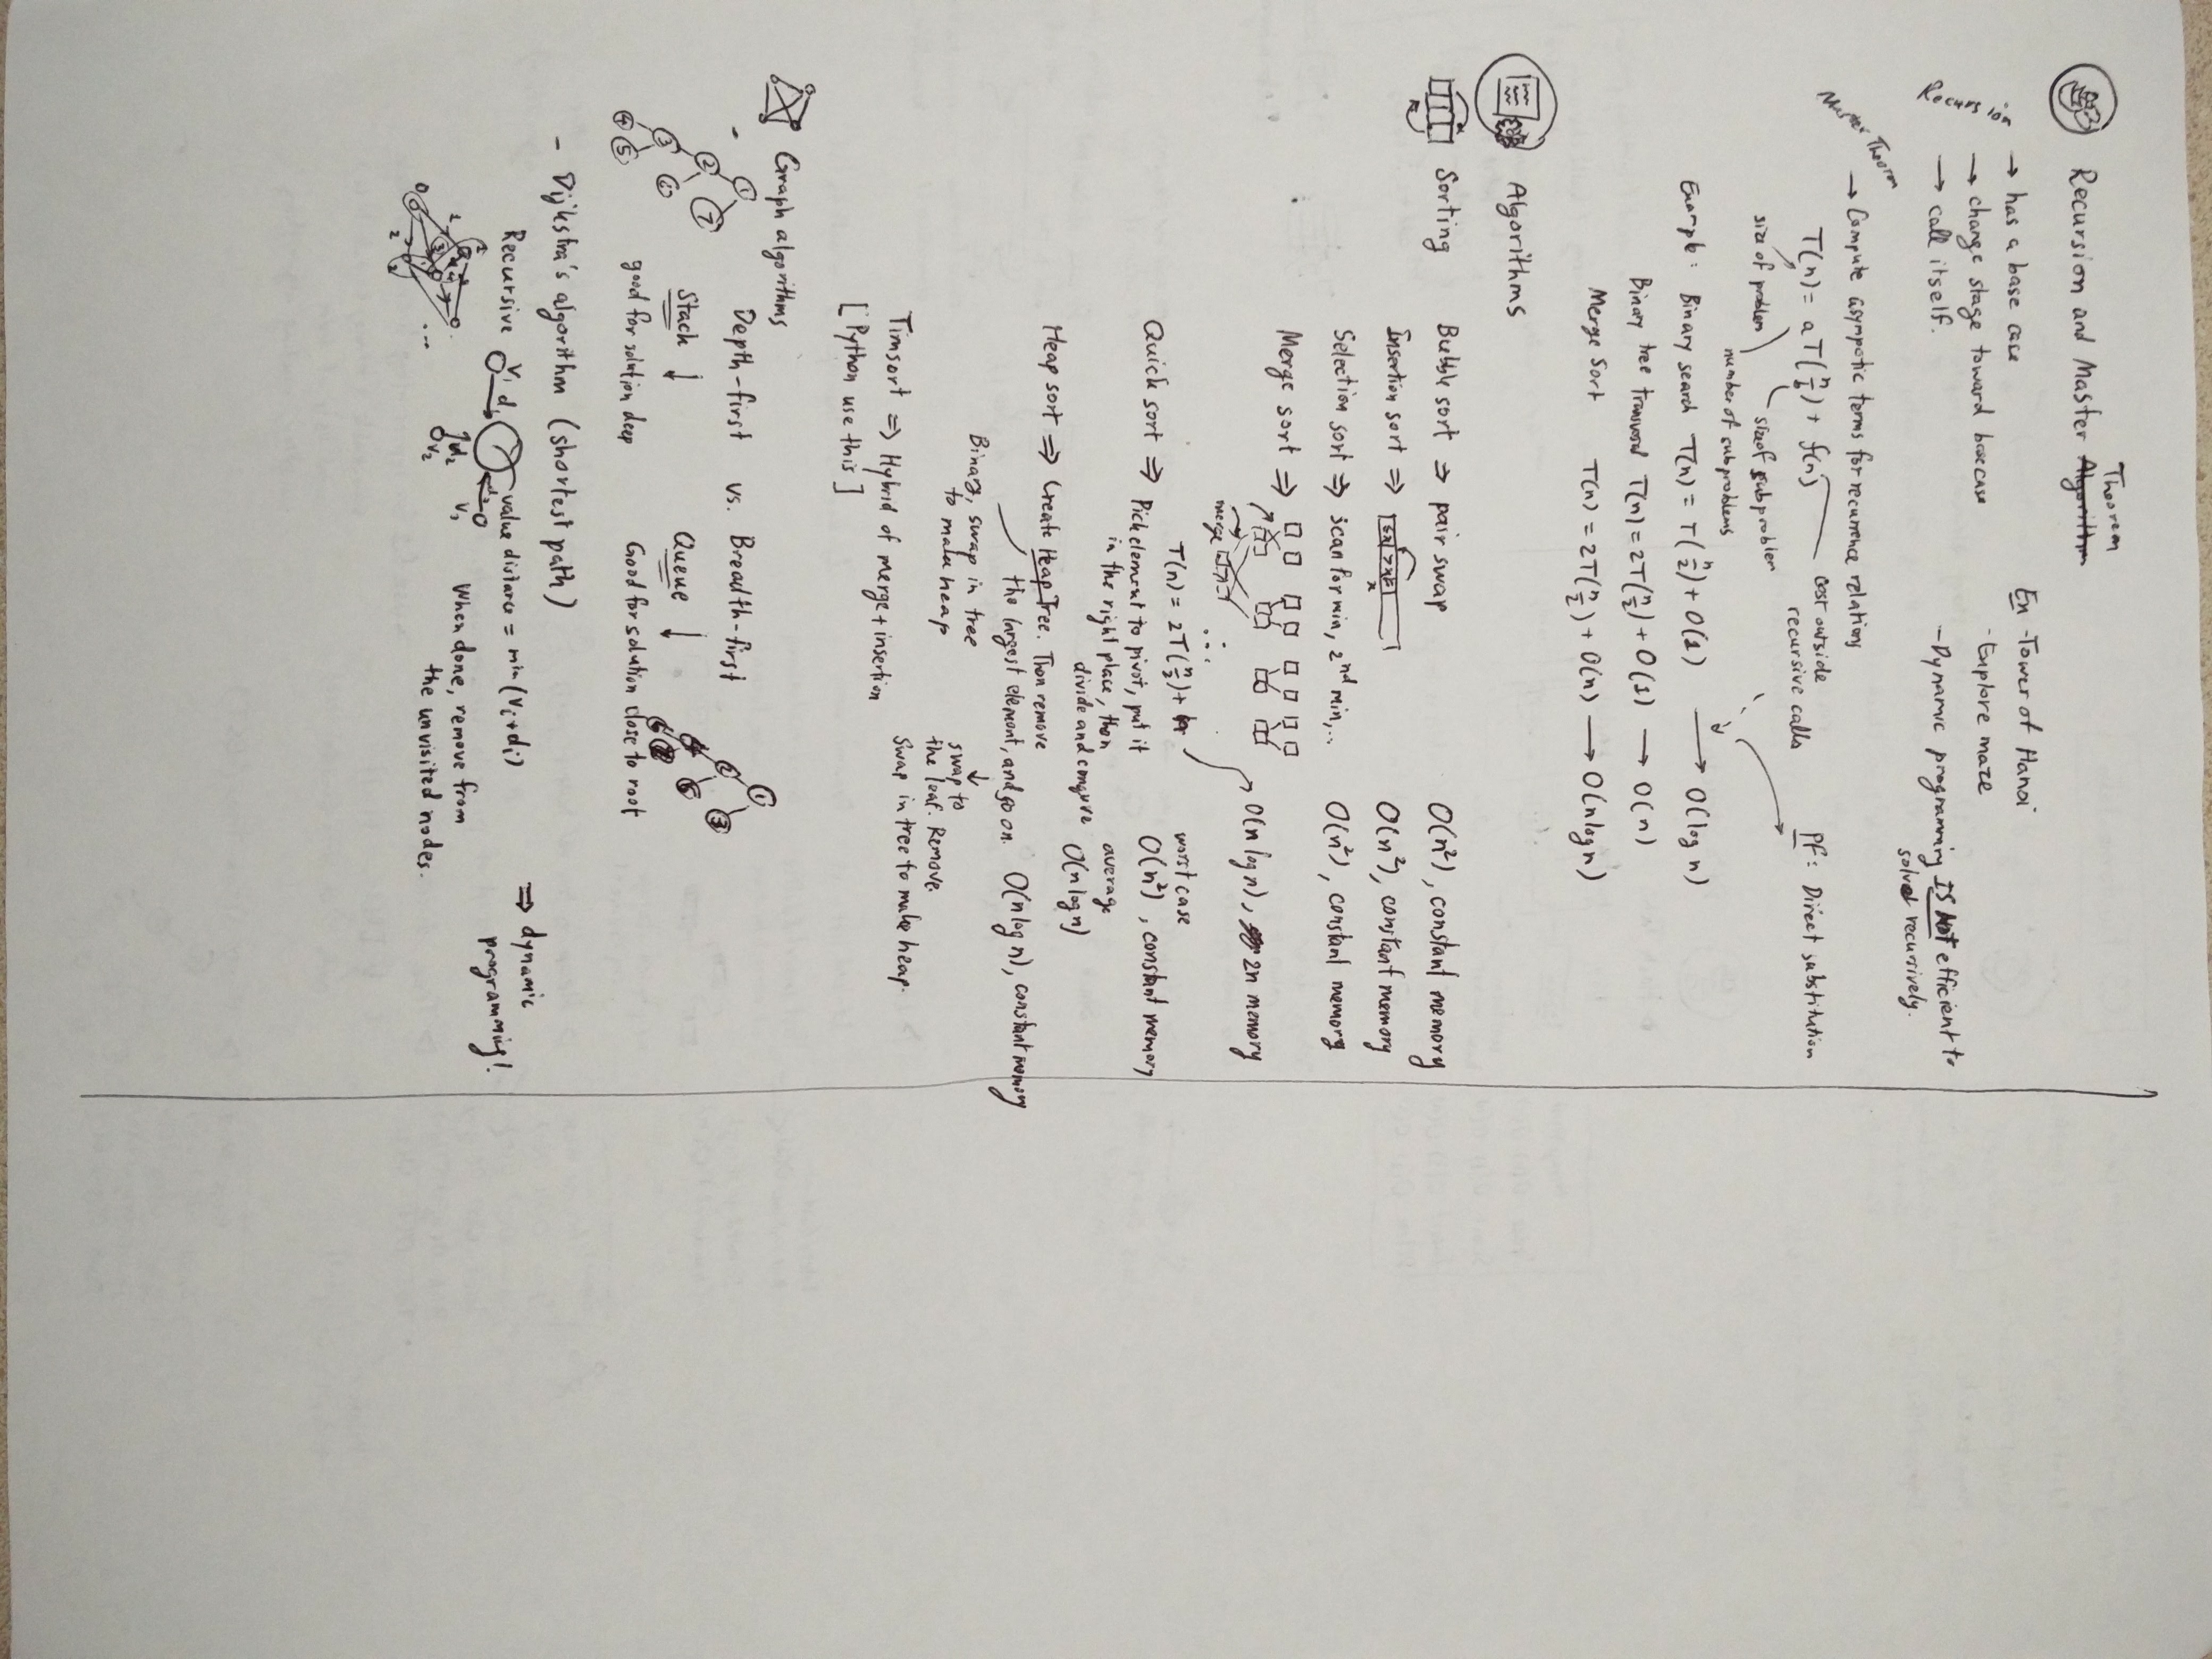 Theorem
Recursion and Master Algorithm
Recursion
→ has a base case
→ change stage toward base case
→ call itself.
Ex -Tower of Hanoi
-Explore maze
-Dynamic programming IS NOT efficient to
solve recursively.
Master Theorem
→ Compute asympotic terms for recurrence relations
T(n) = aT(n/b) + f(n)
cost outside
recursive calls
size of problem
size of subproblem
number of subproblems
Pf: Direct substitution
Example: Binary search T(n) = T(n/2) + O(1) → O(log n)
Binary tree T(n) = 2T(n/2) + O(1) → O(n)
Merge Sort T(n) = 2T(n/2) + O(n) → O(n log n)
Algorithms
Sorting
Bubble sort ⇒ pair swap O(n²), constant memory
Insertion sort ⇒ O(n²), constant memory
x
Selection sort ⇒ scan for min, 2nd min,... O(n²), constant memory
Merge sort ⇒
merge
O(n log n), 2n memory
T(n) = 2T(n/2) + n
Quick sort ⇒ Pick element to pivot, put it
in the right place, then
divide and conqure
worst case
O(n²), constant memory
average
O(n log n)
Heap sort ⇒ Create Heap Tree. Then remove
the largest element, and so on. O(n log n), constant memory
Binary, swap in tree
to make heap
swap to
the leaf. Remove.
Swap in tree to make heap.
Timsort ⇒ Hybrid of merge + insertion
[Python use this]
Graph algorithms
- Depth-first vs. Breadth-first
1
2 7
3 6
4 5
Stack ↓
good for solution deep
Queue ↓
Good for solution close to root
1
2 3
4 5
6 7
- Dijkstra's algorithm (shortest path)
Recursive V₁ d₁ value distance = min(Vi + di)
d₂
V₂
V₃
When done, remove from
the unvisited nodes.
⇒ dynamic
programming!